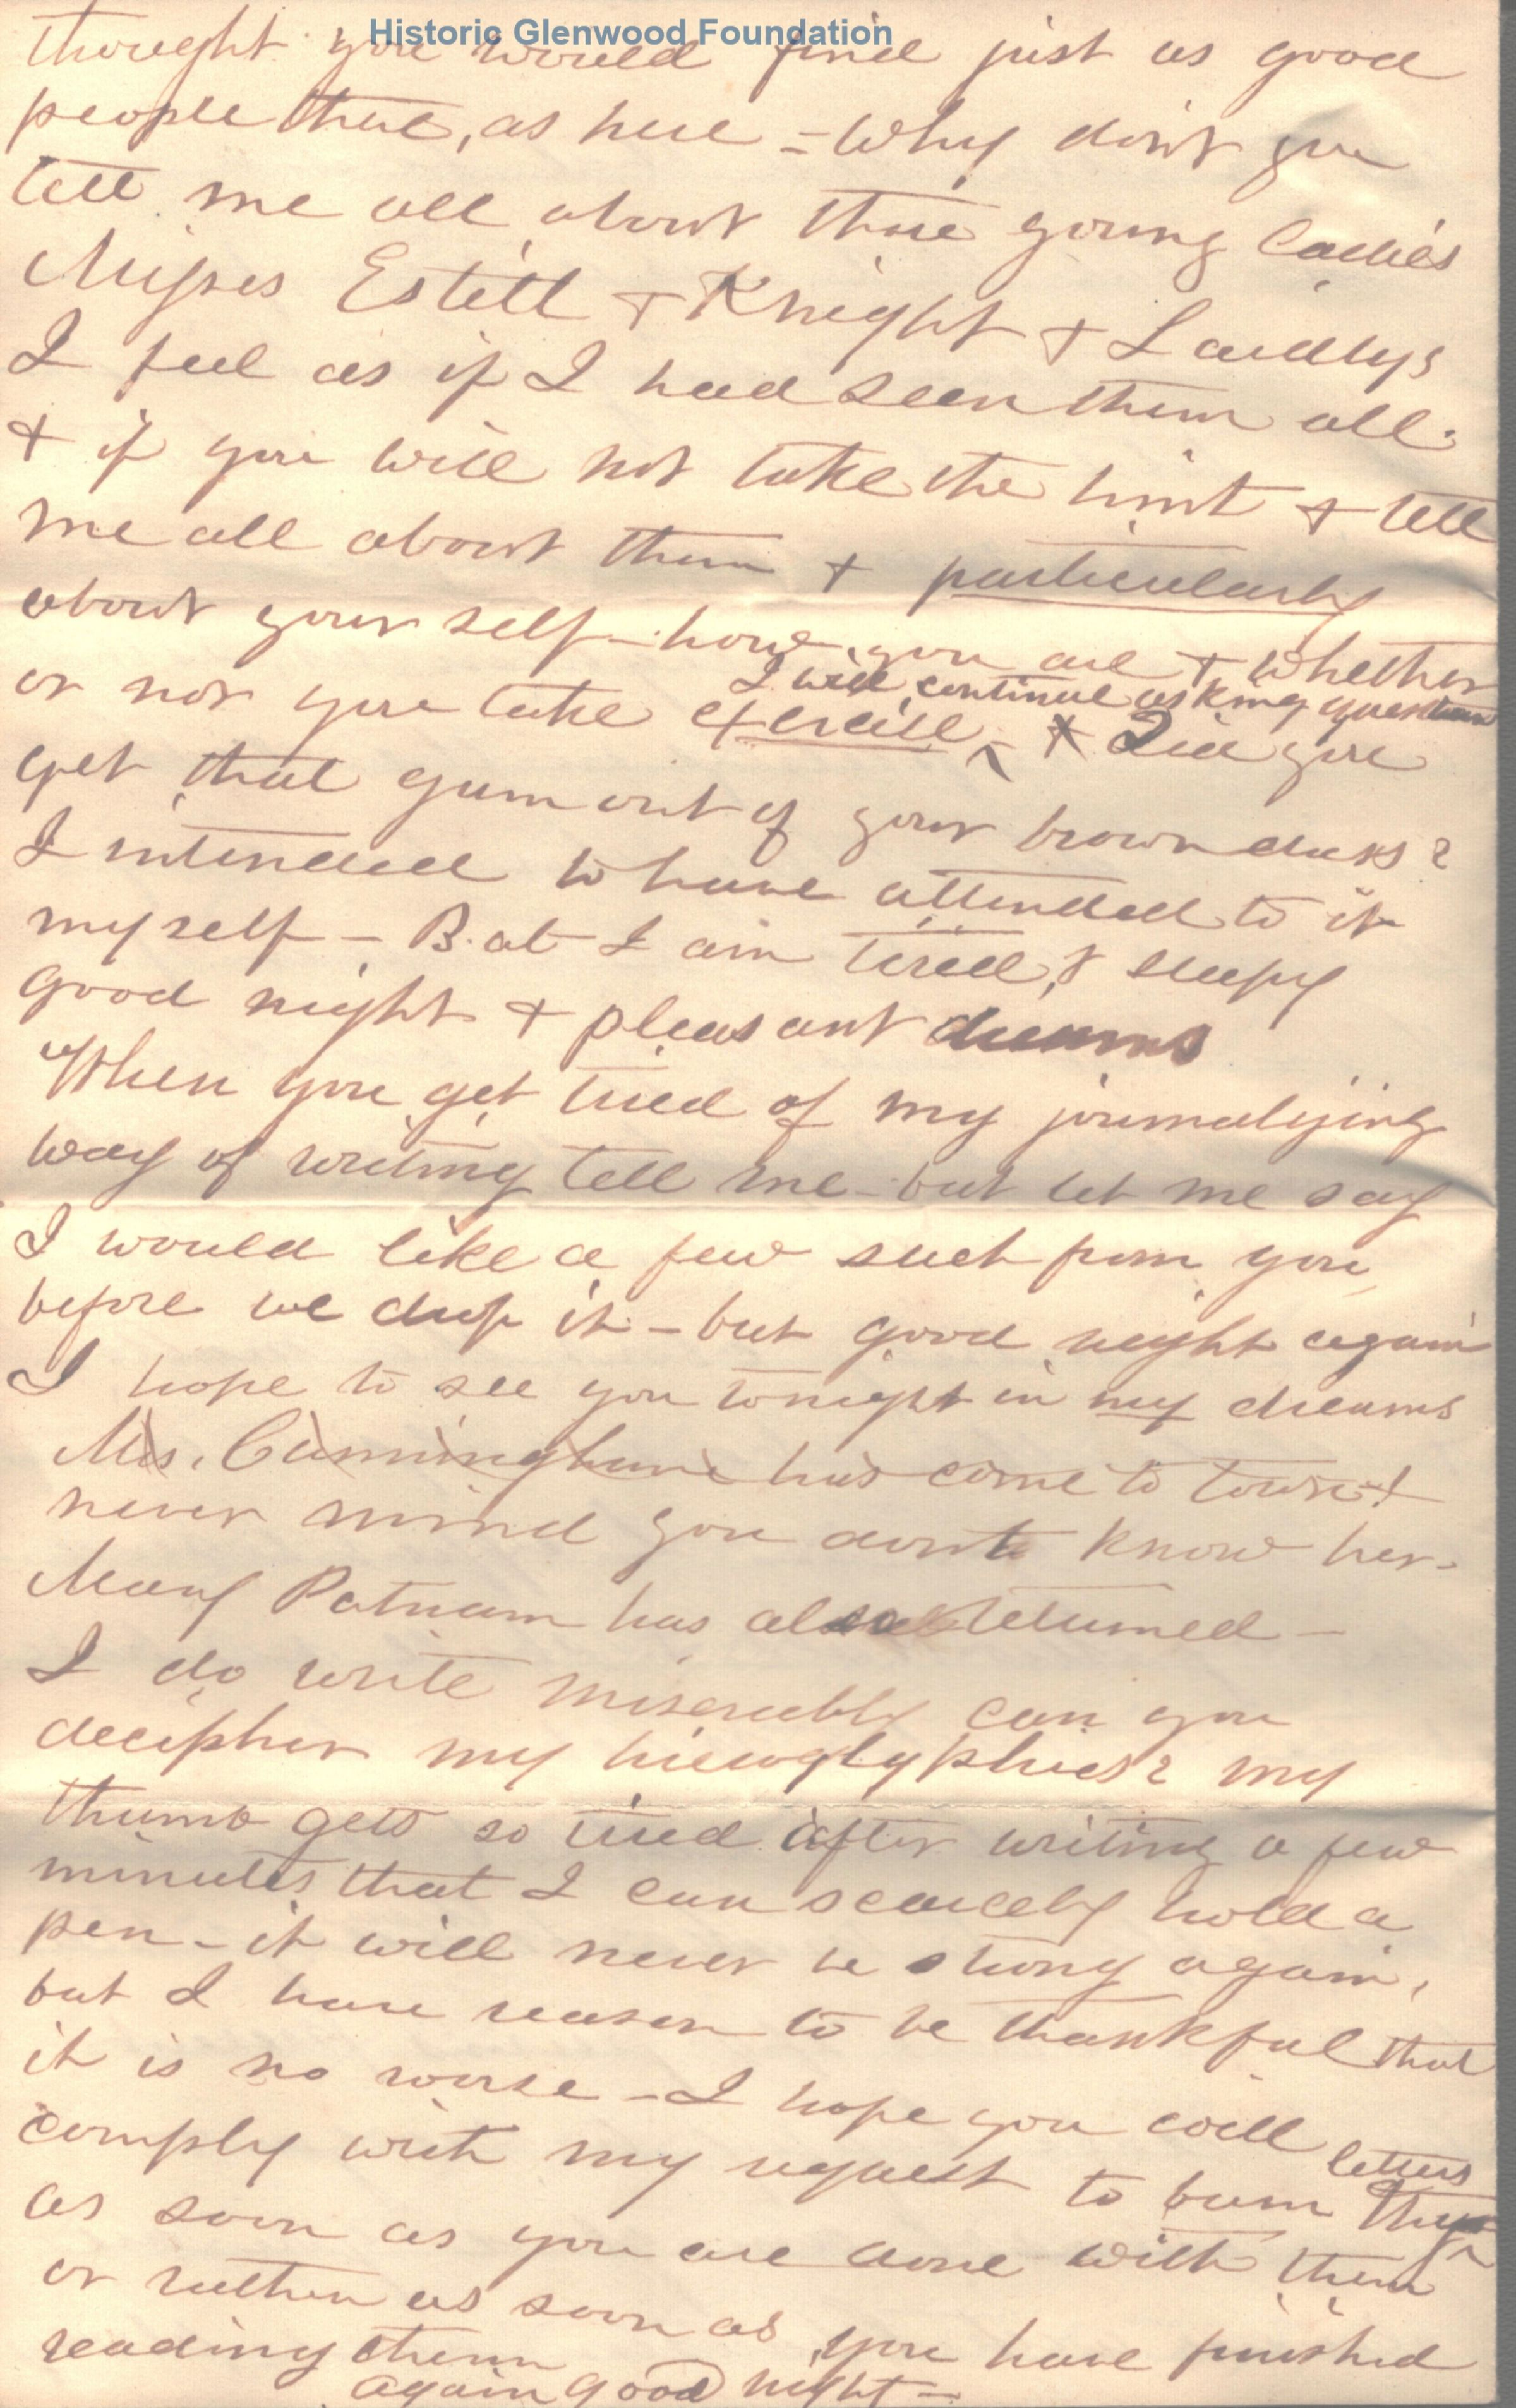 Historic Glenwood Foundation
thought you would find just as good
people there, as here - Why don't you
tell me all about those young ladies
Misses Estill + Knight + Laidlys
I feel as if I had seen them all.
+ if you will not take the hint + tell
me all about them + particularly
about yourself - how you are + whether
or not you take exercise - I will continue asking questions + Did you
get that gum out of your brown
I intended to have attended to it
myself - But I am tired, & sleepy
good night + pleasant dreams
When you get tired of my journalizing
way of writing tell me - but let me say
I would like a few such from you
before we drop it - but good night again
I hope to see you tonight in my dreams
Mrs. Cunningham has come to town!
never mind you dont know her -
Mary Patnam has also returned -
I do write miserably can you
decipher my hieroglyphics? my
thumb gets so tired after writing a few
minutes that I can scarcely hold a
pen - it will never be strong again,
but I have reason to be thankful that
it is no worse - I hope you will
comply with my request to burn letters
as soon as you are done with them
or rather as soon as you have finished
reading them
again good night -